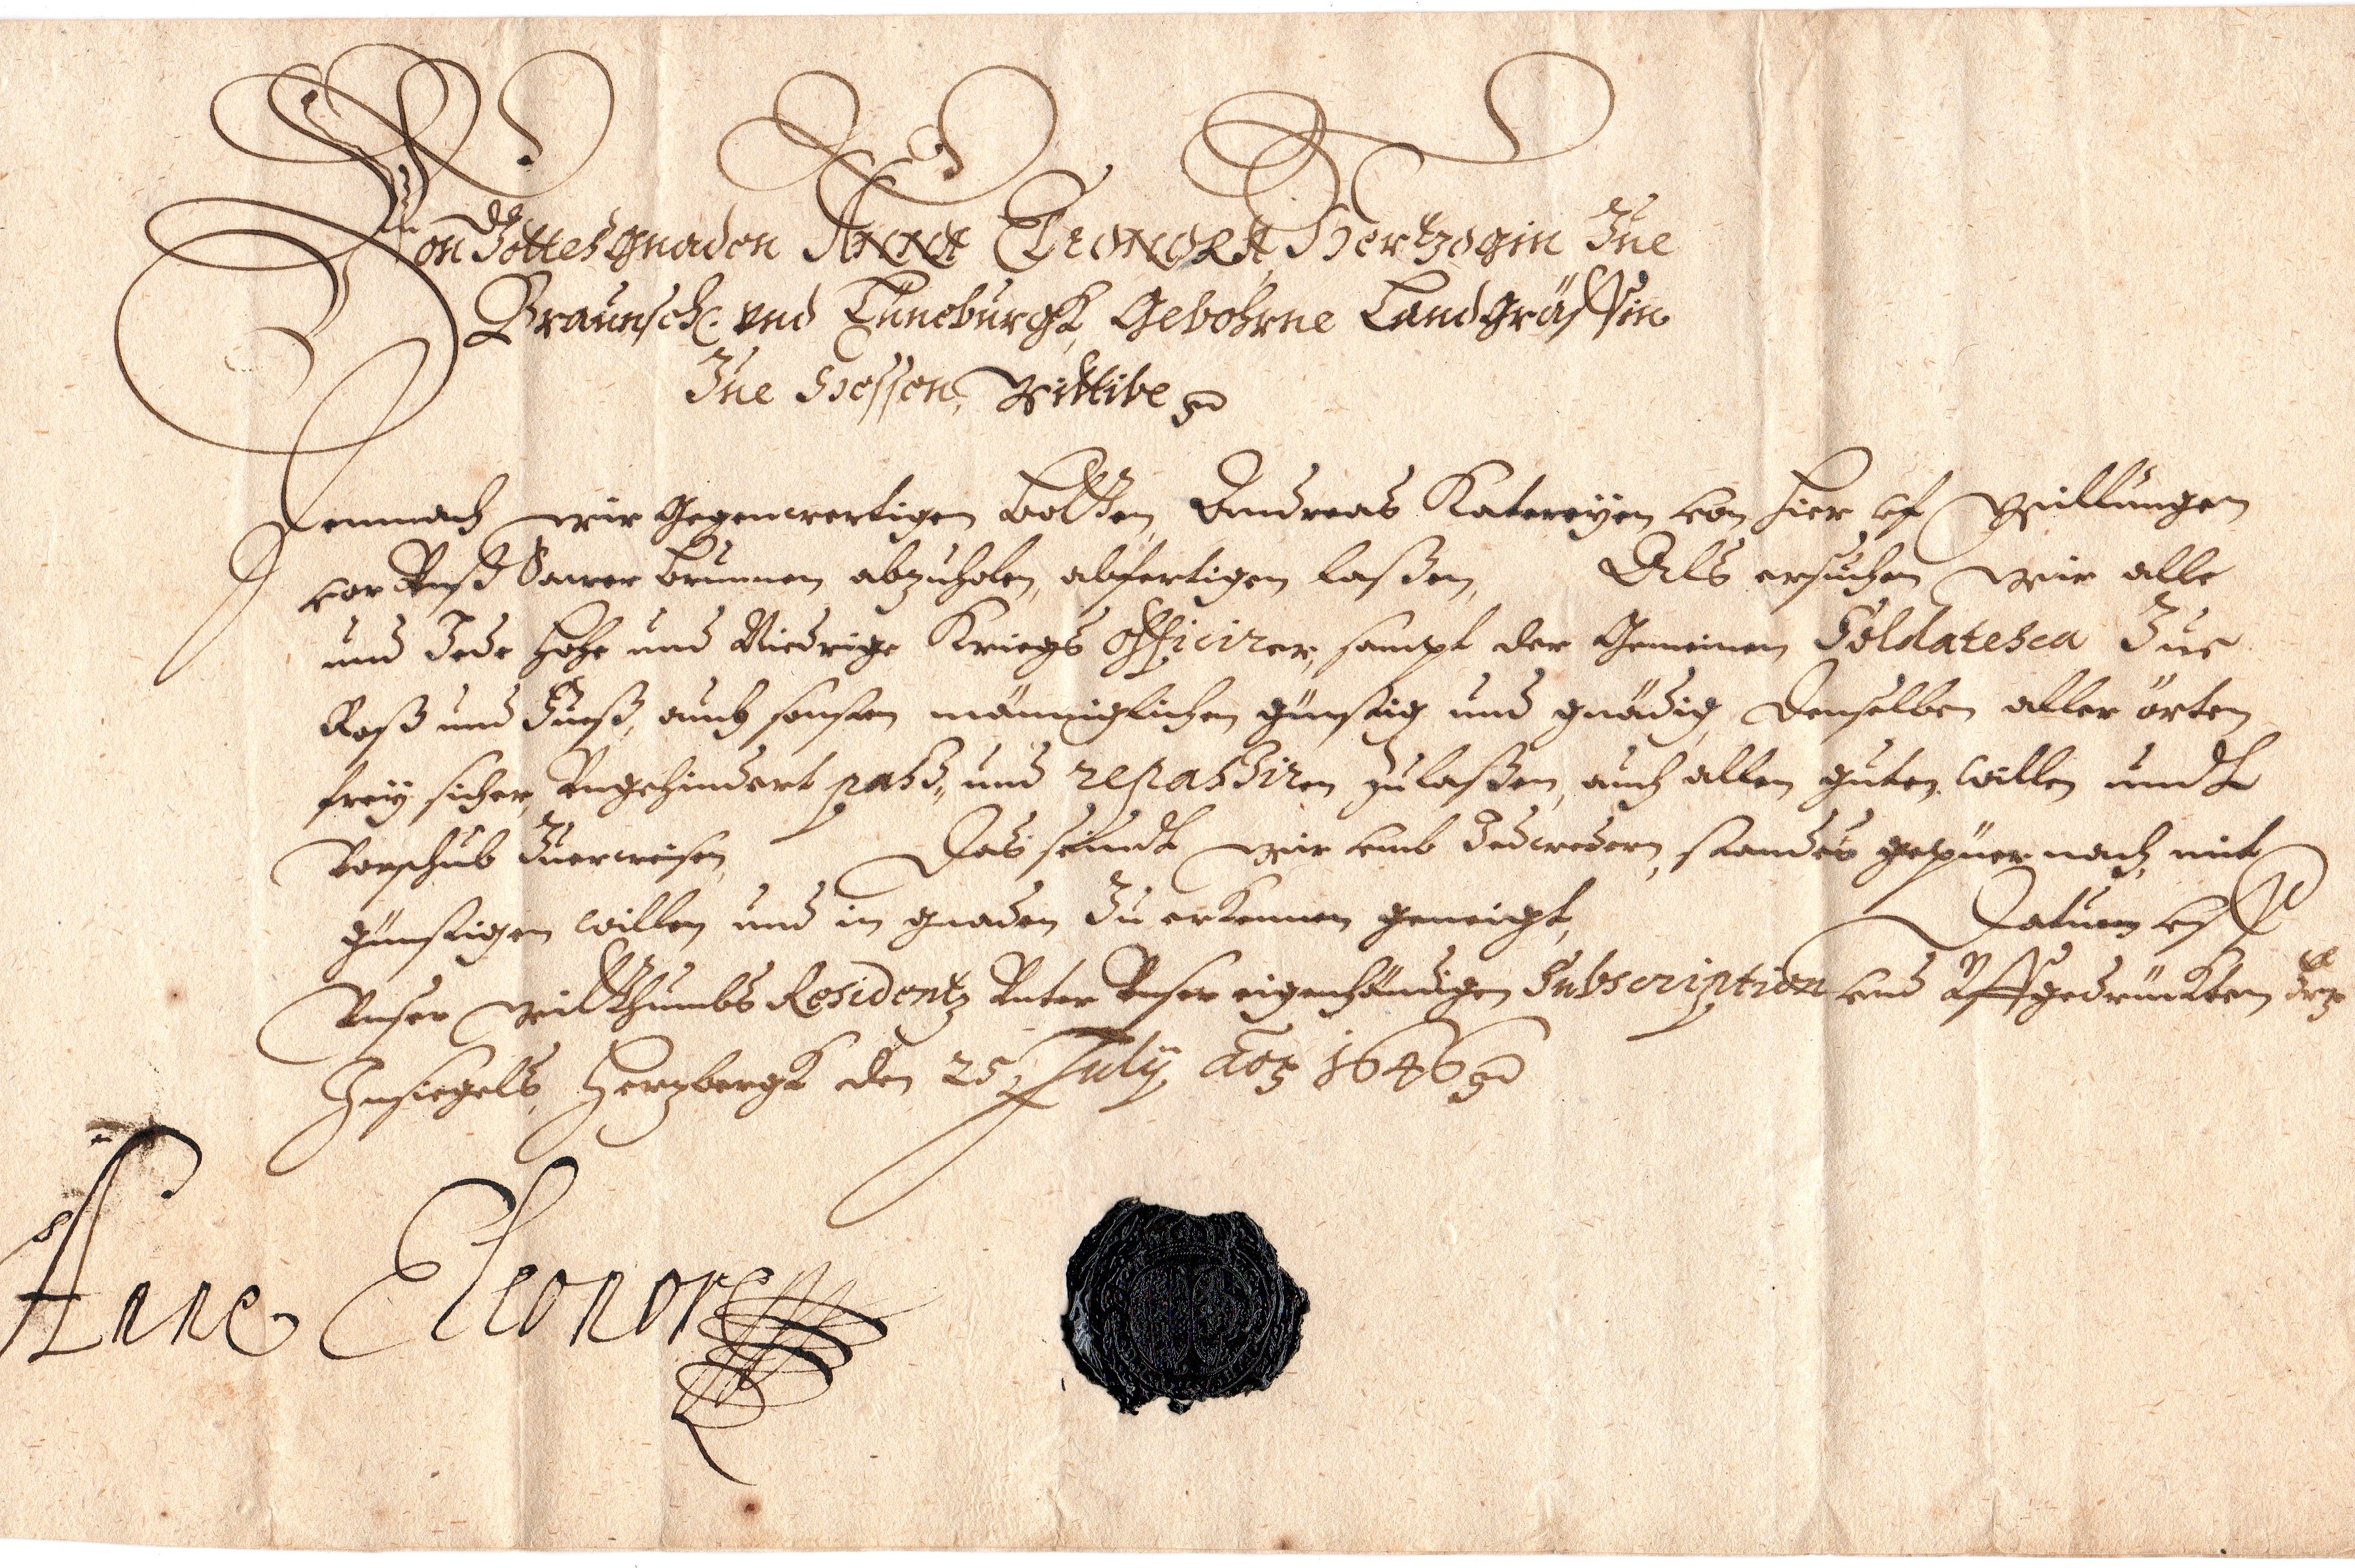 Von Gottes gnaden ANNA ELEONORA, Hertzogin Zue
Braunsch. vnd Lüneburgk, Gebohrne Landgräffin
Zue Hessen, Wittibe
Demnach wir Gegenwertigen Botten, Andreas Katereyen von hier vf Willungen
vor Vnß Sawer brunnen abzuholen, abfertigen laßen, Als ersuchen wir alle
und Jede hohe und Niedrige Kriegs Officirer, sampt der Gemeinen Soldatesca Zue
Roß und Fueß, auch sonsten männiglichen günstig und gnädig, denselben aller örten
frey sicher, Vngehindert pass, und repassiren zulaßen, auch allen guten willen undt
Vorschub Zuerweisen, Das seindt wir vmb Jedwedern, standes gepüer nach, mit
günstigen willen und in gnaden Zu erkennen geneigt, Datum vff
Vnser Witthumbs Residentz Vnter Vnser eigenhändigen Subscription vnd Vffgedrückten
Insiegels, Hertzbergk den 25 July Ao 1646
Anne Eleonore